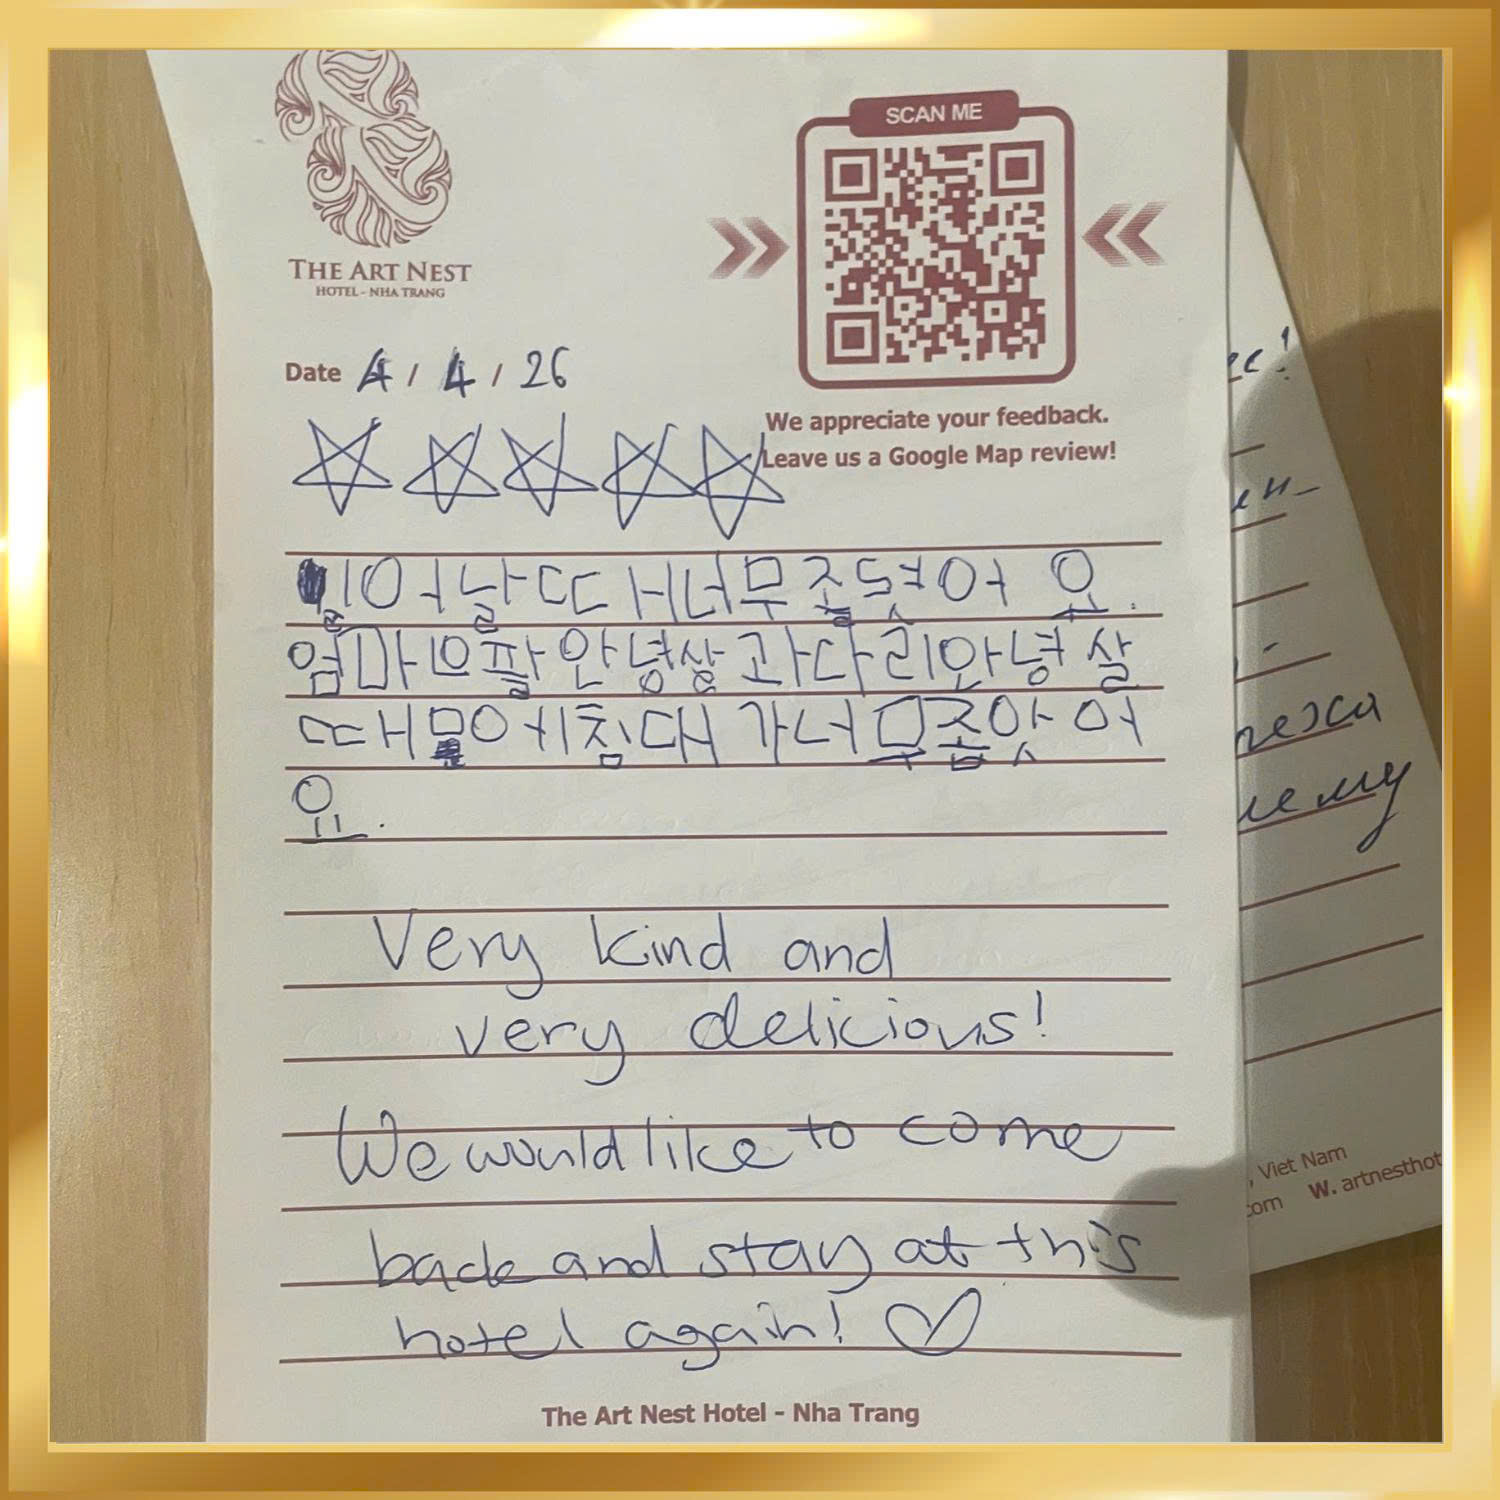 THE ART NEST
HOTEL - NHA TRANG
SCAN ME
Date 4 / 4 / 26
We appreciate your feedback.
Leave us a Google Map review!
일어날 때 너무 좋았어요.
엄마 팔 안녕 다리 안녕
때 침대가 너무 좋았어
요.
Very kind and
very delicious!
We would like to come
back and stay at this
hotel again!
The Art Nest Hotel - Nha Trang
, Viet Nam
com W. artnesthot